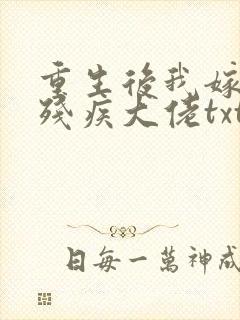 重生後我嫁
殘疾大佬txt
日每一萬神成